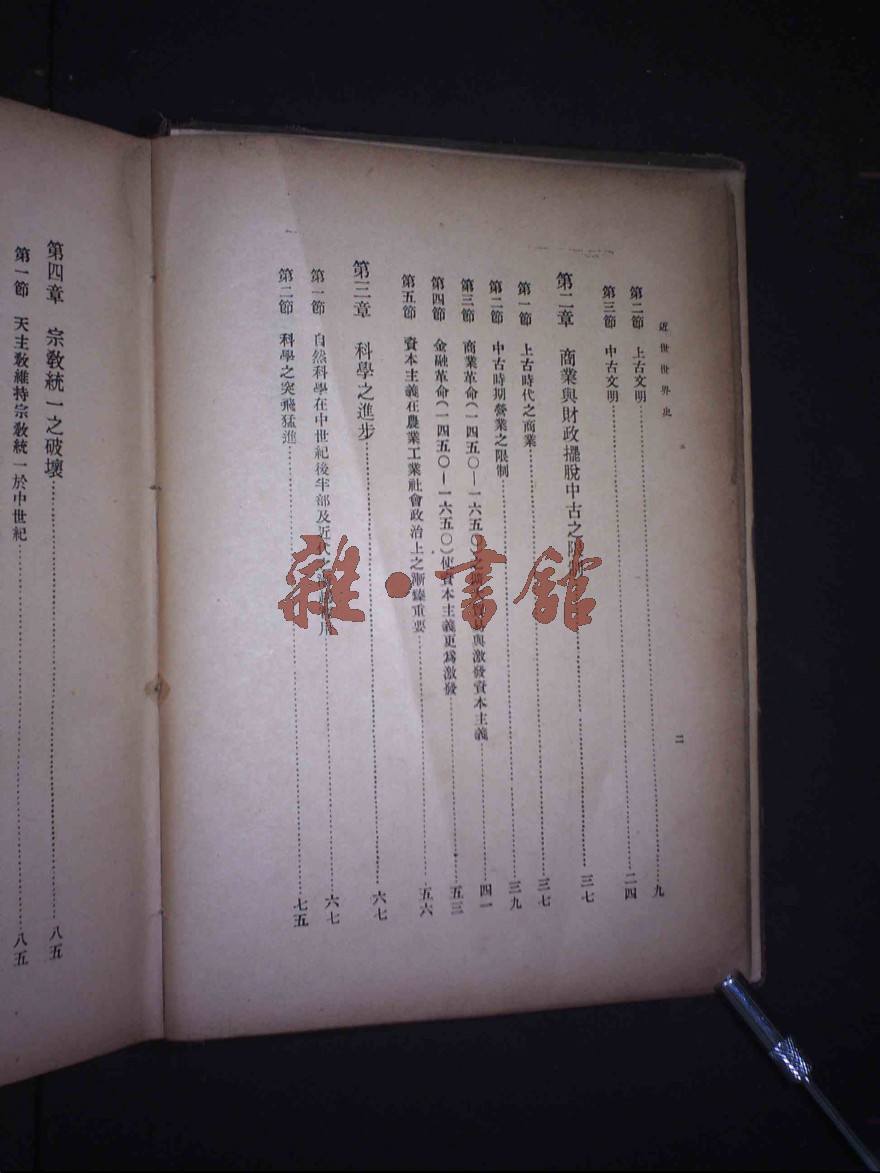 近世世界史
二
第二節 上古文明……九
第三節 中古文明……二四
第二章 商業與財政擺脫中古之限……三七
第一節 上古時代之商業……三七
第二節 中古時期營業之限制……三九
第三節 商業革命(一四五〇—一六五〇)之與激發資本主義……四一
第四節 金融革命(一四五〇—一六五〇)使資本主義更爲激發……五三
第五節 資本主義在農業工業社會政治上之漸臻重要……五六
第三章 科學之進步……六七
第一節 自然科學在中世紀後半部及近代……六七
第二節 科學之突飛猛進……七五
第四章 宗教統一之破壞……八五
第一節 天主教維持宗教統一於中世紀……八五
雜·書館